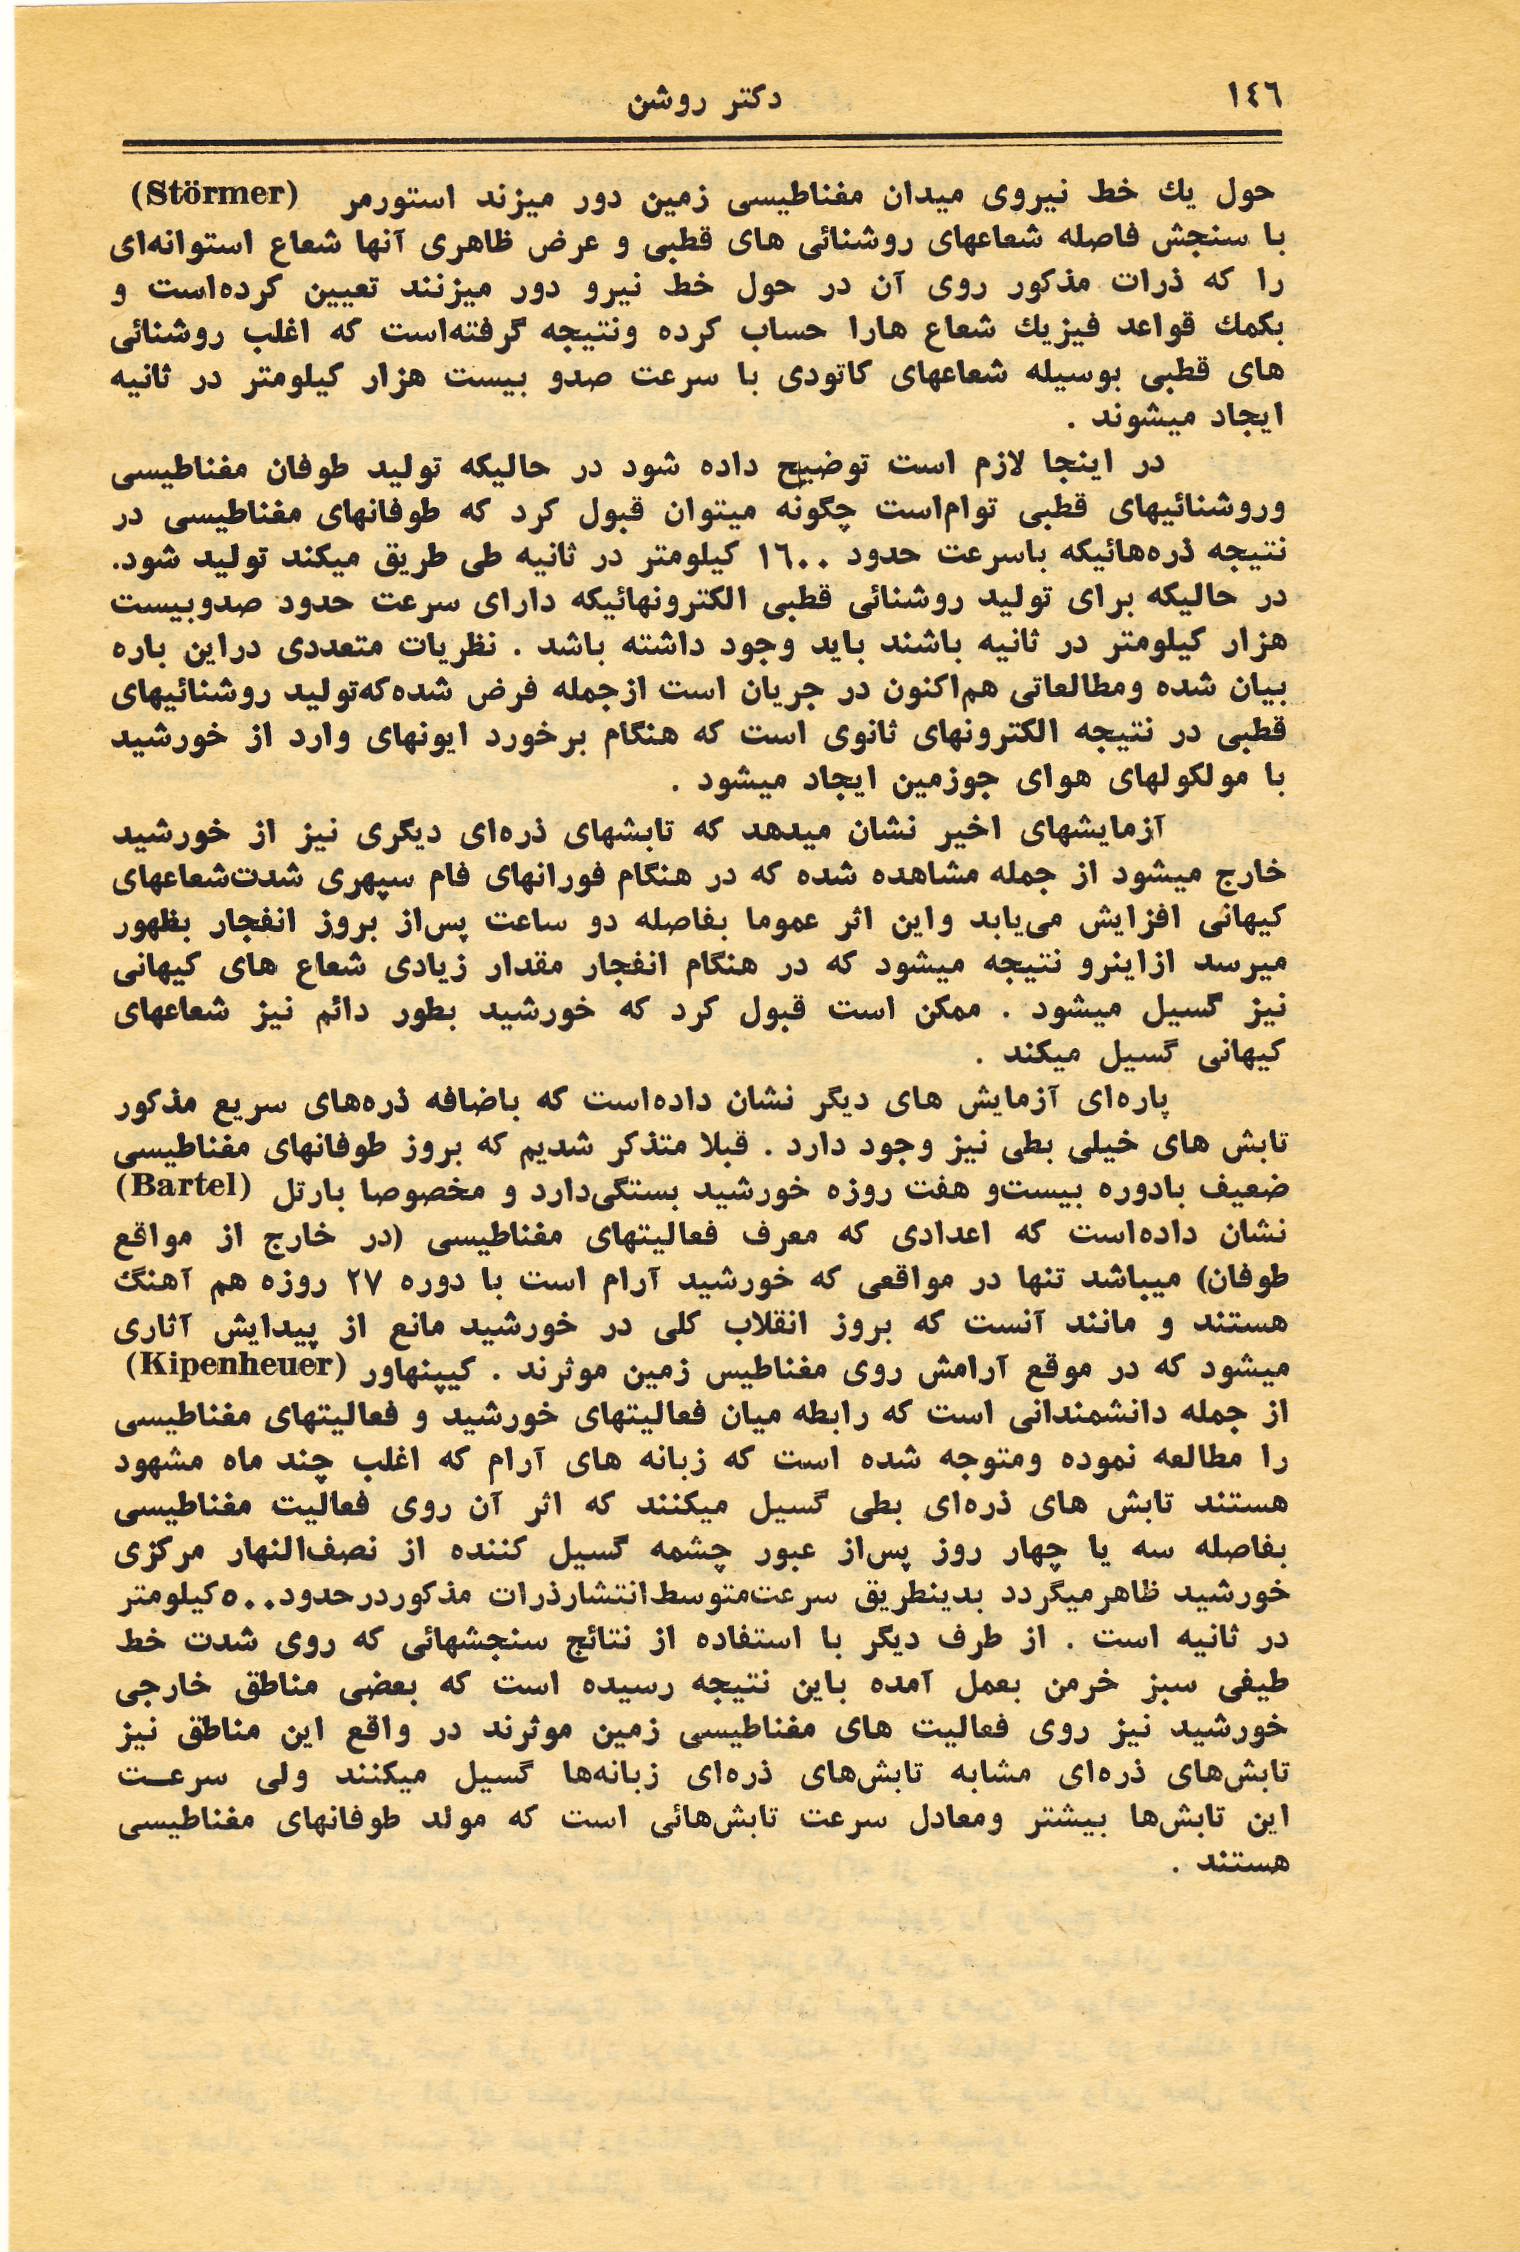 ١٤٦
دکتر روشن
حول یك خط نیروی میدان مغناطیسی زمین دور میزند استورمر (Störmer)
با سنجش فاصله شعاعهای روشنائی های قطبی و عرض ظاهری آنها شعاع استوانه‌ای
را که ذرات مذکور روی آن در حول خط نیرو دور میزنند تعیین کرده‌است و
بکمك قواعد فیزیك شعاع هارا حساب کرده ونتیجه گرفته‌است که اغلب روشنائی
های قطبی بوسیله شعاعهای کاتودی با سرعت صدو بیست هزار کیلومتر در ثانیه
ایجاد میشوند .
در اینجا لازم است توضیح داده شود در حالیکه تولید طوفان مغناطیسی
وروشنائیهای قطبی توام‌است چگونه میتوان قبول کرد که طوفانهای مغناطیسی در
نتیجه ذره‌هائیکه باسرعت حدود ١٦٠٠ کیلومتر در ثانیه طی طریق میکند تولید شود.
در حالیکه برای تولید روشنائی قطبی الکترونهائیکه دارای سرعت حدود صدوبیست
هزار کیلومتر در ثانیه باشند باید وجود داشته باشد . نظریات متعددی دراین باره
بیان شده ومطالعاتی هم‌اکنون در جریان است ازجمله فرض شده‌که‌تولید روشنائیهای
قطبی در نتیجه الکترونهای ثانوی است که هنگام برخورد ایونهای وارد از خورشید
با مولکولهای هوای جوزمین ایجاد میشود .
آزمایشهای اخیر نشان میدهد که تابشهای ذره‌ای دیگری نیز از خورشید
خارج میشود از جمله مشاهده شده که در هنگام فورانهای فام سپهری شدت‌شعاعهای
کیهانی افزایش می‌یابد واین اثر عموما بفاصله دو ساعت پس‌از بروز انفجار بظهور
میرسد ازاینرو نتیجه میشود که در هنگام انفجار مقدار زیادی شعاع های کیهانی
نیز گسیل میشود . ممکن است قبول کرد که خورشید بطور دائم نیز شعاعهای
کیهانی گسیل میکند .
پاره‌ای آزمایش های دیگر نشان داده‌است که باضافه ذره‌های سریع مذکور
تابش های خیلی بطی نیز وجود دارد . قبلا متذکر شدیم که بروز طوفانهای مغناطیسی
ضعیف بادوره بیست‌و هفت روزه خورشید بستگی‌دارد و مخصوصا بارتل (Bartel)
نشان داده‌است که اعدادی که معرف فعالیتهای مغناطیسی (در خارج از مواقع
طوفان) میباشد تنها در مواقعی که خورشید آرام است با دوره ۲۷ روزه هم آهنگ
هستند و مانند آنست که بروز انقلاب کلی در خورشید مانع از پیدایش آثاری
میشود که در موقع آرامش روی مغناطیس زمین موثرند . کیپنهاور (Kipenheuer)
از جمله دانشمندانی است که رابطه میان فعالیتهای خورشید و فعالیتهای مغناطیسی
را مطالعه نموده ومتوجه شده است که زبانه های آرام که اغلب چند ماه مشهود
هستند تابش های ذره‌ای بطی گسیل میکنند که اثر آن روی فعالیت مغناطیسی
بفاصله سه یا چهار روز پس‌از عبور چشمه گسیل کننده از نصف‌النهار مرکزی
خورشید ظاهرمیگردد بدینطریق سرعت‌متوسط‌انتشارذرات مذکوردرحدود٥٠٠کیلومتر
در ثانیه است . از طرف دیگر با استفاده از نتائج سنجشهائی که روی شدت خط
طیفی سبز خرمن بعمل آمده باین نتیجه رسیده است که بعضی مناطق خارجی
خورشید نیز روی فعالیت های مغناطیسی زمین موثرند در واقع این مناطق نیز
تابش‌های ذره‌ای مشابه تابش‌های ذره‌ای زبانه‌ها گسیل میکنند ولی سرعــت
این تابش‌ها بیشتر ومعادل سرعت تابش‌هائی است که مولد طوفانهای مغناطیسی
هستند .